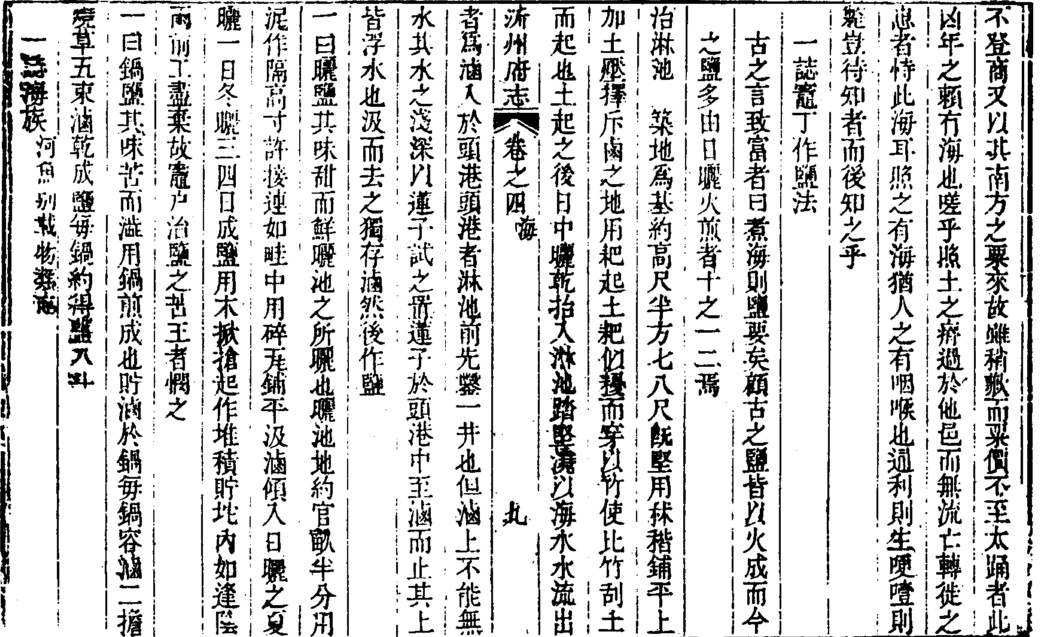 不登商又以其南方之粟來故雖稍歉而粟價不至太踊者此
凶年之賴有海也嗟乎照土之瘠過於他邑而無流亡轉徙之
患者恃此海耳照之有海猶人之有咽喉也通利則生哽噎則
斃豈待知者而後知之乎
一誌竈丁作鹽法
古之言致富者曰煮海則鹽要矣顧古之鹽皆以火成而今
之鹽多由日曬火煎者十之一二焉
治淋池 築地為基約高尺半方七八尺既堅用秫稭鋪平上
加土壓擇斥鹵之地用耙起土耙似耰而穿以竹使比竹刮土
而起也土起之後日中曬乾抬入淋池踏堅澆以海水水流出
沂州府志 卷之四 海 九
者為滷入於頭港頭港者淋池前先鑿一井也但滷上不能無
水其水之淺深以蓮子試之置蓮子於頭港中至滷而止其上
皆浮水也汲而去之獨存滷然後作鹽
一曰曬鹽其味甜而鮮曬池之所曬也曬池地約官畝半分用
泥作隔高寸許接連如畦中用碎瓦鋪平汲滷傾入日曬之夏
曬一日冬曬三四日成鹽用木掀搶起作堆積貯坨內如逢陰
雨前工盡棄故竈戶治鹽之苦王者憫之
一曰鍋鹽其味苦而澁用鍋煎成也貯滷於鍋每鍋容滷二擔
燒草五束滷乾成鹽每鍋約得鹽八斗
一誌海族 河魚別載物類志